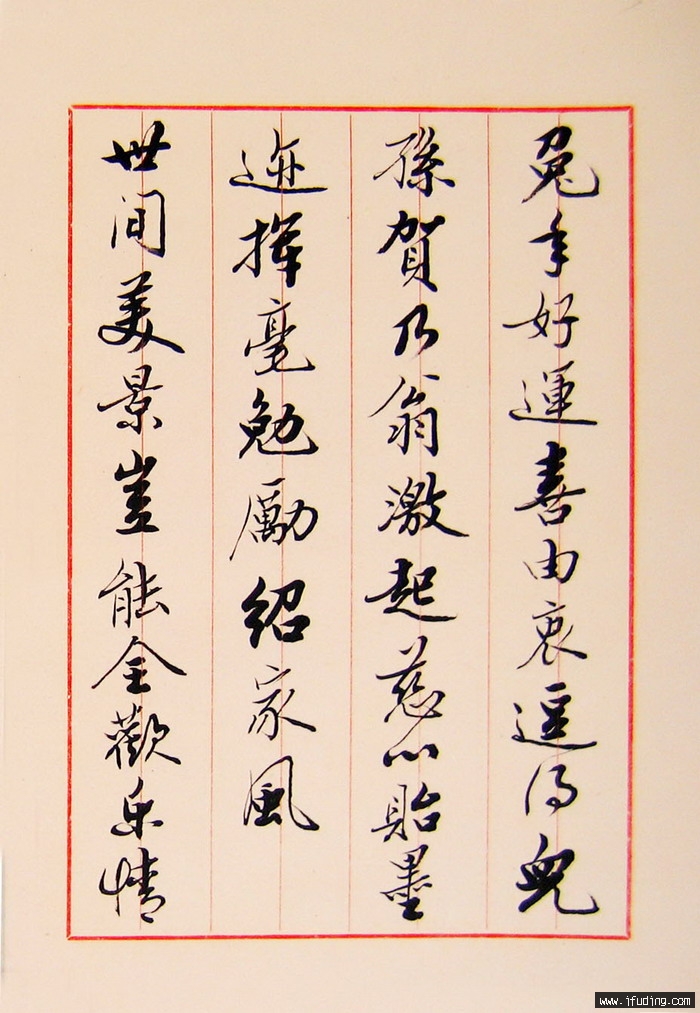 兔年好運喜由衷逗得兒
孫賀乃翁激起慈心貽墨
迹揮毫勉勵紹家風
世间美景豈能全歡乐情
www.ifuding.com